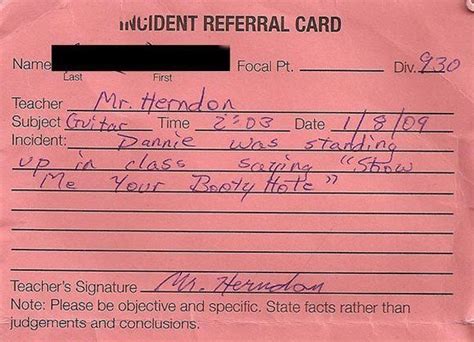 INCIDENT REFERRAL CARD
Name Focal Pt. Div. 930
Last First
Teacher Mr. Herndon
Subject Guitar Time 2:03 Date 1/8/09
Incident: Dannie was standing
up in class saying "Show
Me Your Booty Hole"
Teacher's Signature Mr. Herndon
Note: Please be objective and specific. State facts rather than
judgements and conclusions.